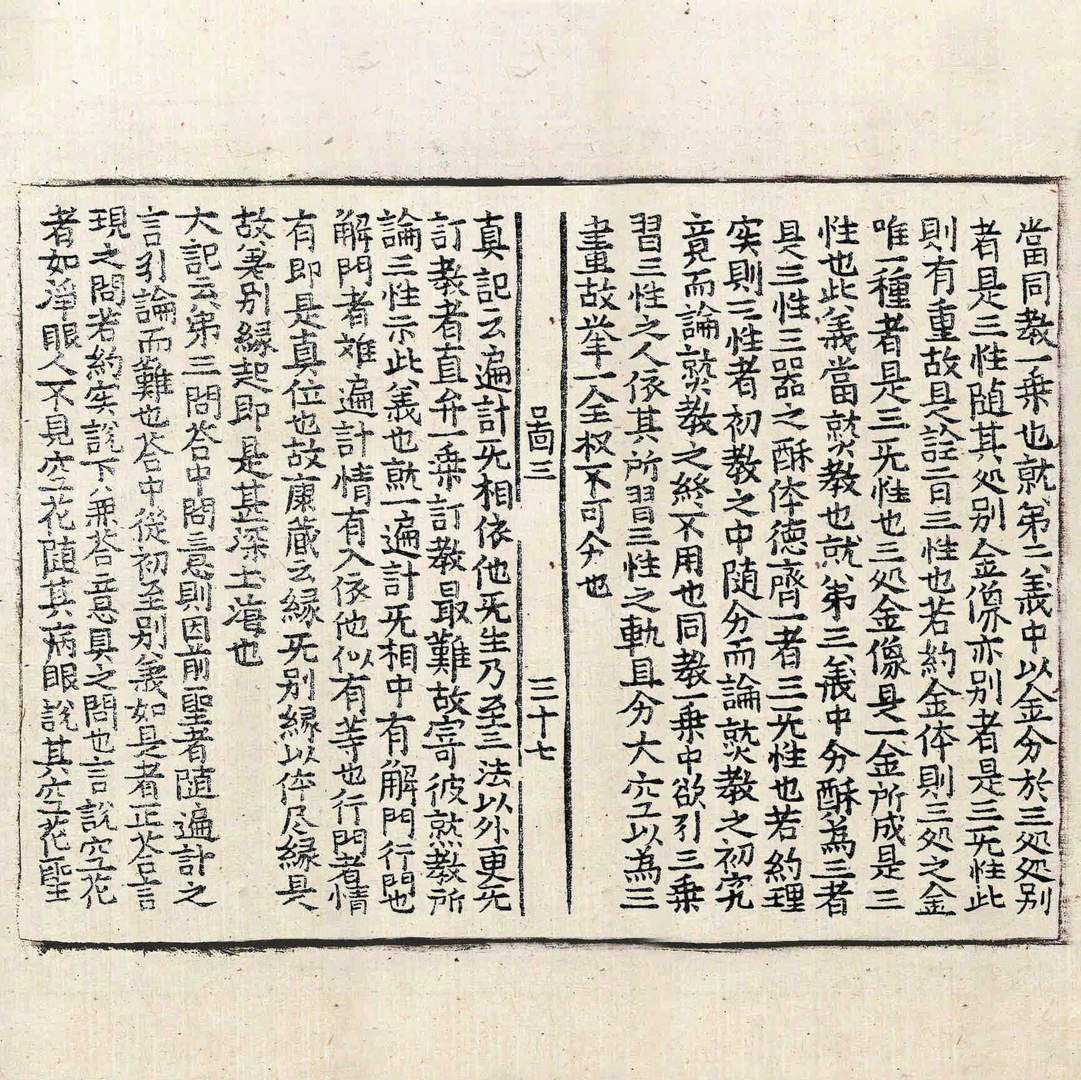 當同教一乗也就第二義中以金分於三処処别
者是三性随其処别金像亦别者是三旡性此
則有重故是詮二曰三性也若約金体則三処之金
唯一種者是三旡性也三処金像是一金所成是三
性也此義當就教也就第三義中分酥為三者
是三性三器之酥体徳齊一者三旡性也若約理
实則三性者初教之中随分而論就教之初究
竟而論就教之終不用也同教一乗中欲引三乗
習三性之人依其所習三性之軌且分大空以為三
畫故挙一全权不可分也
啚三 三十七
真記云遍計旡相依他旡生乃至三法以外更旡
訂教者直弁一乗訂教最難故寄彼就教所
論三性示此義也就一遍計旡相中有解門行門也
解門者难遍計情有入依他似有等也行門者情
有即是真位也故康蔵云縁旡别縁以体尽縁具
故寔别縁起即是甚深土海也
大記云第三問荅中問意則因前聖者随遍計之
言引論而難也荅中從初至别義如是者正荅言
現之問若約实說下兼荅意具之問也言說空花
者如淨眼人不見空花随其病眼說其空花聖